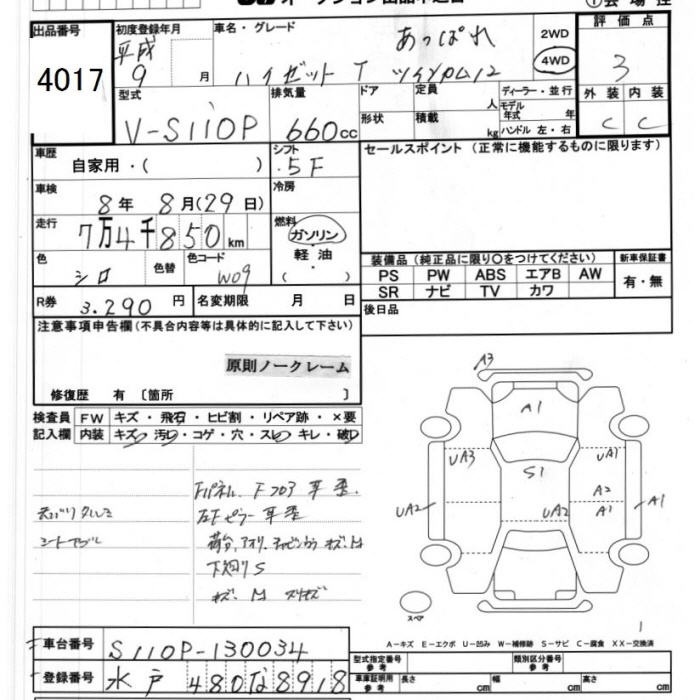 出品番号
4017
初度登録年月
平成
9 月
車名・グレード
あっぱれ
ハイゼット T ツインカム12
2WD
4WD
評価点
3
外装 内装
C C
型式
V-S110P
排気量
660cc
ドア
形状
定員 人
積載 kg
ディーラー・並行
モデル年式 年
ハンドル 左・右
車歴
自家用・( )
シフト
5F
セールスポイント(正常に機能するものに限ります)
車検
8年 8月(29日)
冷房
走行
7万4千850km
燃料
ガソリン
軽油
( )
色
シロ
色替
色コード
W09
装備品(純正品に限り○をつけてください)
PS PW ABS エアB AW
SR ナビ TV カワ
新車保証書
有・無
R券
3.290 円
名変期限 月 日
後日品
注意事項申告欄(不具合内容等は具体的に記入して下さい)
原則ノークレーム
修復歴 有〔箇所 〕
検査員記入欄
FW キズ・飛石・ヒビ割・リペア跡・×要
内装 キズ・汚レ・コゲ・穴・スレ・キレ・破レ
天バリタルミ
Fパネル、Fフロア
左Fピラー
下廻りS
A3
A1
UA3
UA1
S1
A2
A1
UA2
UA2
A1
スペア
1
A-キズ E-エクボ U-凹み W-補修跡 S-サビ C-腐食 XX-交換済
車台番号
S110P-130034
型式指定番号
参考
類別区分番号
参考
登録番号
水戸 480な8918
車庫証明用
参考
長さ cm
幅 cm
高さ cm